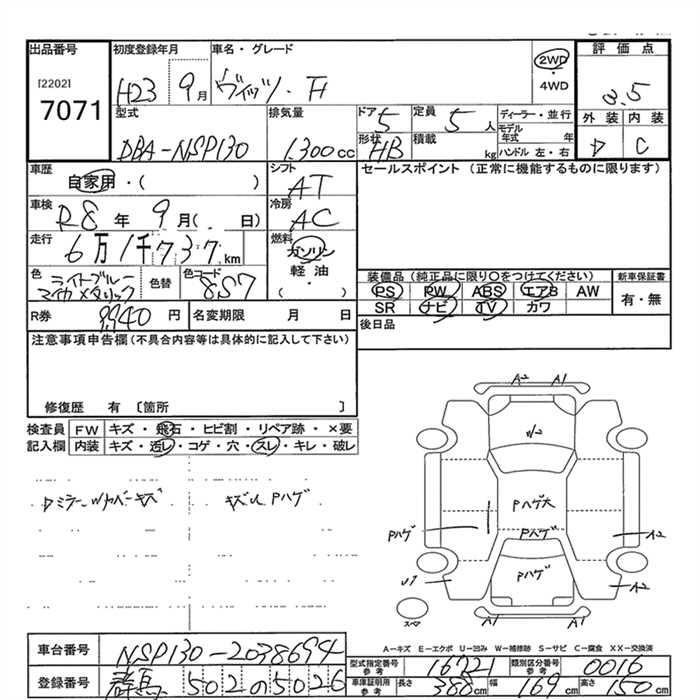 出品番号 初度登録年月 車名・グレード 評価点
[2202] 7071 H23 9月 ヴィッツ・F 2WD・4WD 3.5
型式 排気量 ドア 5 定員 5人 ディーラー・並行 外装 内装
DBA-NSP130 1300cc 形状 HB 積載 kg モデル年式 年 ハンドル 左・右 D C
車歴 自家用・( ) シフト AT セールスポイント(正常に機能するものに限ります)
車検 R8年 9月( . 日) 冷房 AC
走行 6万1千737km 燃料 ガソリン 軽油・( )
色 ライトブルーマイカメタリック 色替 色コード 8S7 装備品(純正品に限り〇をつけてください) 新車保証書
PS PW ABS エアB AW 有・無
SR ナビ TV カワ
R券 9940円 名変期限 月 日 後日品
注意事項申告欄(不具合内容等は具体的に記入して下さい)
修復歴 有 〔箇所 〕
検査員 FW キズ・飛石・ヒビ割・リペア跡・×要
記入欄 内装 キズ・汚レ・コゲ・穴・スレ・キレ・破レ
Dミラーウカバーキズ キズ
Pハゲ
A2 A1
W2
Pハゲ大
Pハゲ Pハゲ A2
Pハゲ
U1 A2
スペア A1 A1
A-キズ E-エクボ U-凹み W-補修跡 S-サビ C-腐食 XX-交換済
車台番号 NSP130-2038694 型式指定番号 参考 16721 類別区分番号 参考 0016
登録番号 群馬502の5026 車庫証明用 参考 長さ 388cm 幅 169cm 高さ 150cm